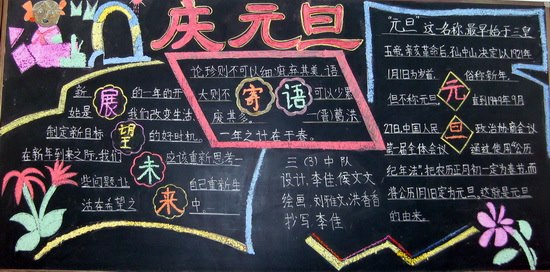 庆元旦
新展的一年的开
始是我们改变生活
制定新目标望的好时机。
在新年到来之际,我们
未应该重新思考一
些问题,让自己重新生
活在希望之来中。
论珍则不可以细,麻弃其美,语
大则不寄语可以少累
废其多。——(晋)葛洪
一年之计在于春。
三(3)中队
设计:李佳、侯文文
绘画:刘雅文、洪香香
抄写:李佳
"元旦"这一名称,最早始于三皇
五帝,辛亥革命后,孙中山决定以1921年
1月1日为岁首,俗称新年,
但不称元旦元直到1949年9月
27日,中国人民旦政治协商会议
第一届全体会议通过使用"公历
纪年法",把农历正月初一定为春节,而
将公历1月1日定为元旦,这就是元旦
的由来。